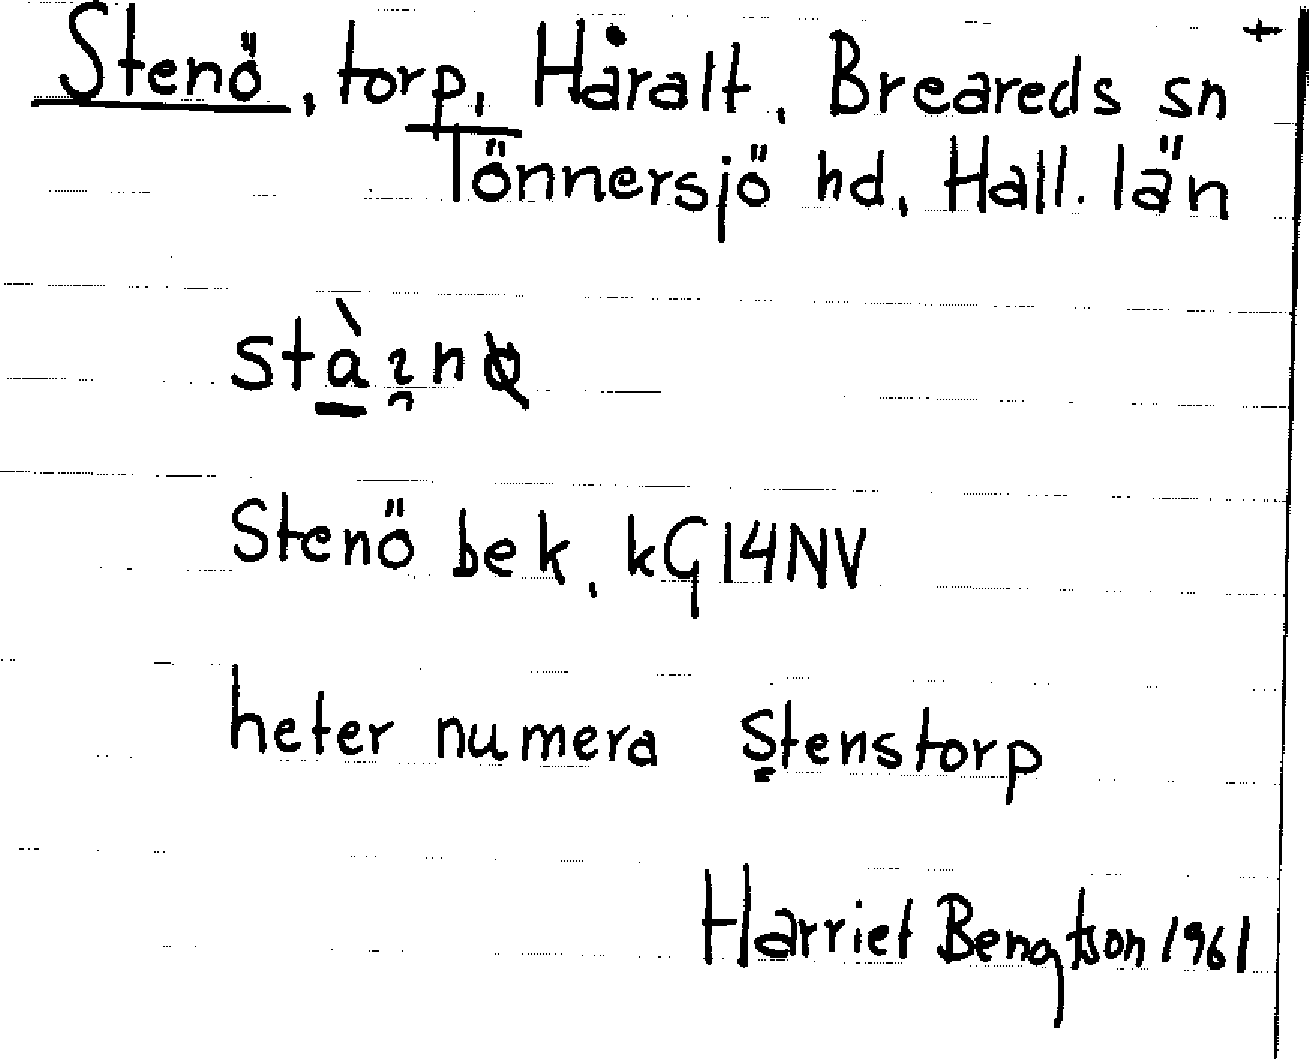 Stenö, torp, Håralt, Breareds sn +
Tönnersjö hd, Hall. län
Stenö bek, kG14NV
heter numera Stenstorp
Harriet Bengtson 1961